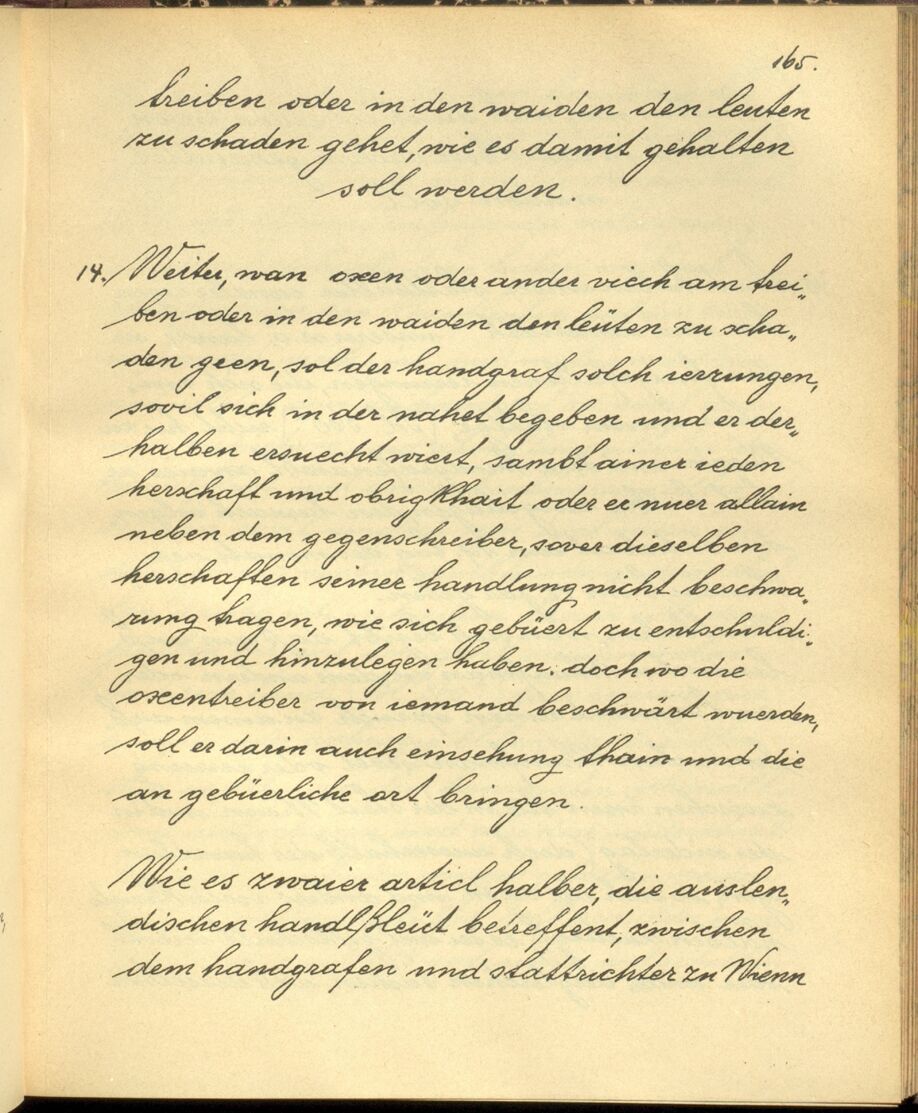 165.
treiben oder in den waiden den leuten
zu schaden gehet, wie es damit gehalten
soll werden.
14. Weiter, wan oxen oder ander viech am trei„
ben oder in den waiden den leüten zu scha„
den geen, sol der handgraf solch ierrungen,
sovil sich in der nahet begeben und er der„
halben ersuecht wiert, sambt ainer ieden
herschaft und obrigkhait oder er nuer allain
neben dem gegenschreiber, sover dieselben
herschaften seiner handlung nicht beschwa„
rung tragen, wie sich gebüert zu entschuldi„
gen und hinzulegen haben. doch wo die
oxentreiber von iemand beschwärt wuerden,
soll er darin auch einsehung thain und die
an gebüerliche ort bringen.
Wie es zwaier articl halber, die auslen„
dischen handlßleüt betreffent, zwischen
dem handgrafen und stattrichter zu Wienn